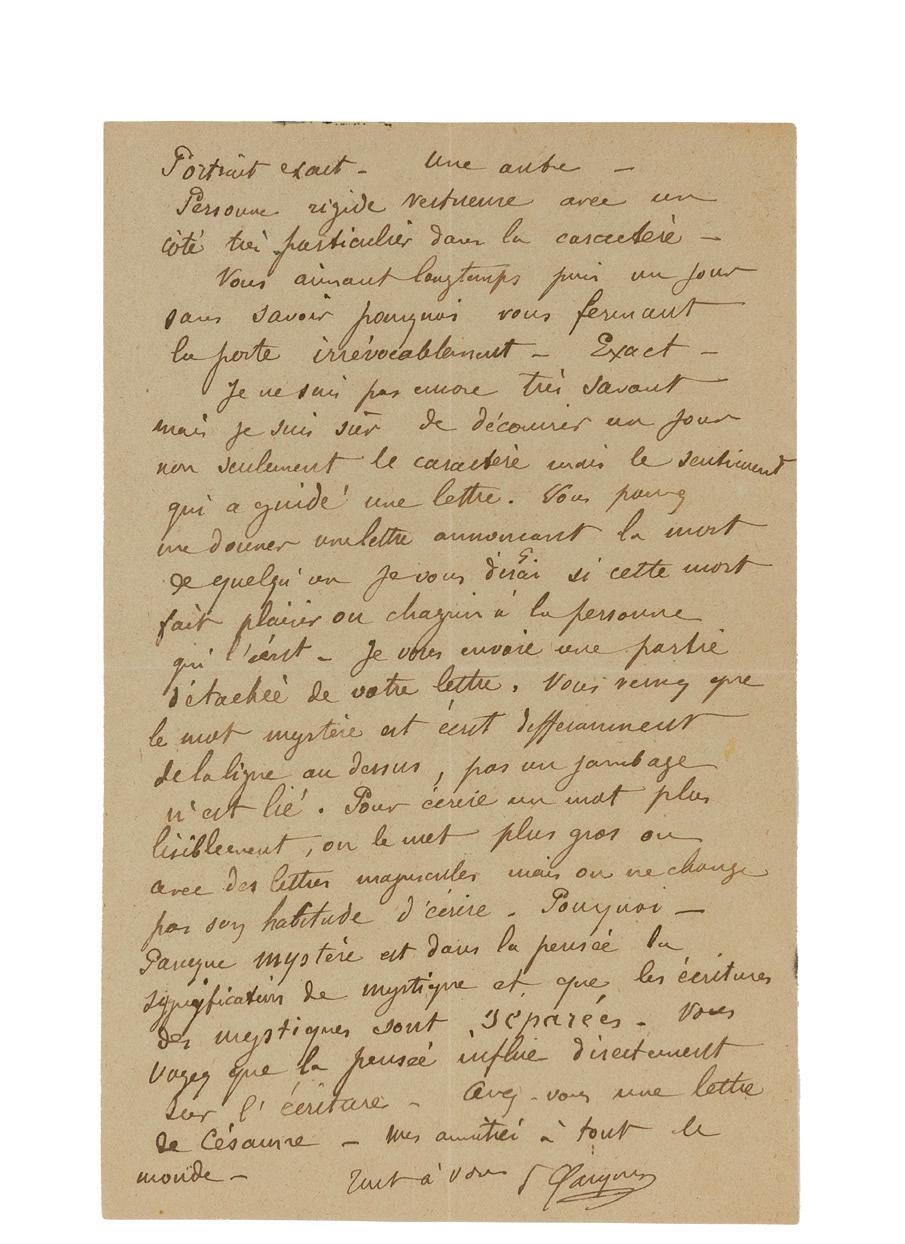 Portrait exact - Une autre -
Personne rigide vertueuse avec un
côté très particulier dans le caractère -
Vous aimant longtemps puis un jour
sans savoir pourquoi vous fermant
la porte irrévocablement - Exact -
Je ne suis pas encore très savant
mais je suis sûr de découvrir un jour
non seulement le caractère mais le sentiment
qui a guidé une lettre. Vous pouvez
me donner une lettre annoncant la mort
de quelqu'un je vous dirai si cette mort
fait plaisir ou chagrin à la personne
qui l'écrit - Je vous envoie une partie
détachée de votre lettre. Vous verrez que
le mot mystère est écrit differamment
de la ligne au dessus, pas un jambage
n'est lié. Pour écrire un mot plus
lisiblement, on le met plus gros ou
avec des lettres majuscules mais on ne change
pas son habitude d'écrire. Pourquoi -
Parceque mystère est dans la pensée la
signification de mystique et que les écritures
des mystiques sont séparées - Vous
voyez que la pensée influe directement
sur l'écriture - Avez-vous une lettre
de Césanne - Mes amitiés à tout le
monde - Tout à vous